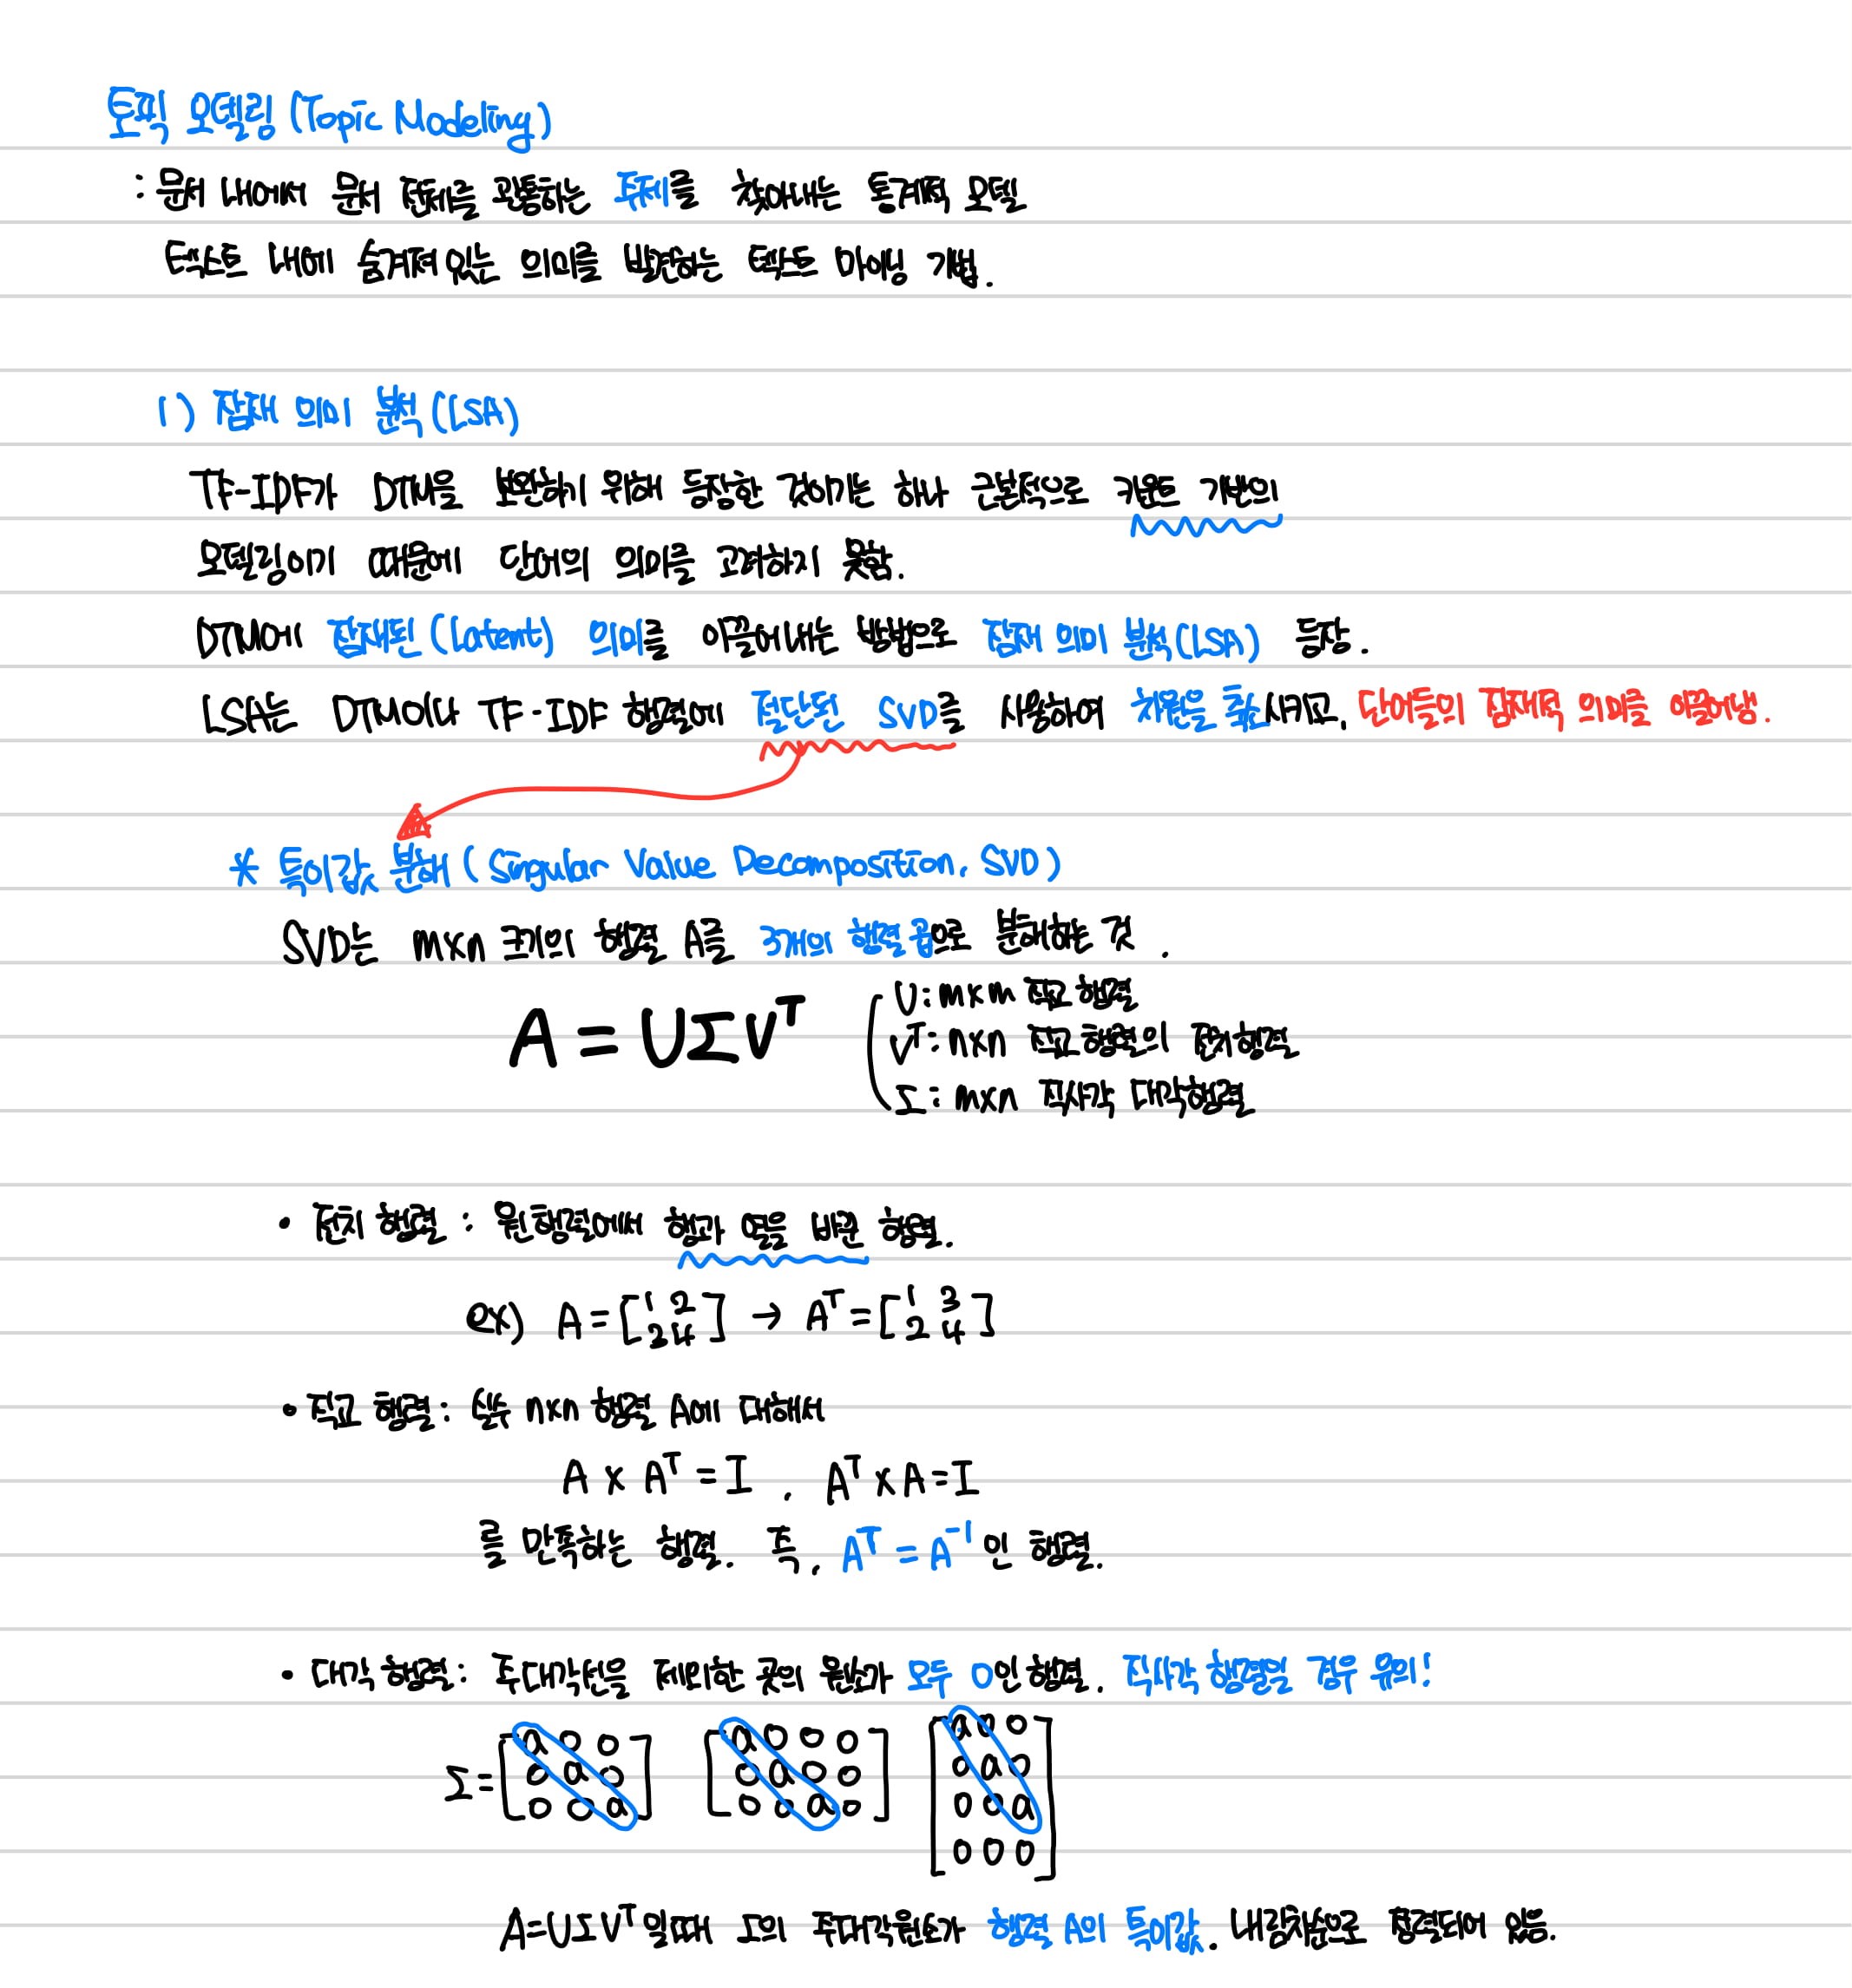 토픽 모델링 (Topic Modeling)
: 문서 내에서 문서 전체를 관통하는 주제를 찾아내는 통계적 모델
텍스트 내에 숨겨져 있는 의미를 발견하는 텍스트 마이닝 기법.
1) 잠재 의미 분석 (LSA)
TF-IDF가 DTM을 보완하기 위해 등장한 것이기는 하나 근본적으로 카운트 기반의
모델링이기 때문에 단어의 의미를 고려하지 못함.
DTM에 잠재된 (Latent) 의미를 이끌어내는 방법으로 잠재 의미 분석(LSA) 등장.
LSA는 DTM이나 TF-IDF 행렬에 절단된 SVD를 사용하여 차원을 축소시키고, 단어들의 잠재적 의미를 이끌어냄.
* 특이값 분해 (Singular Value Decomposition, SVD)
SVD는 m×n 크기의 행렬 A를 3개의 행렬 곱으로 분해하는 것.
A = UΣV^T
U: m×m 직교 행렬
V^T: n×n 직교 행렬의 전치행렬
Σ: m×n 직사각 대각행렬
• 전치 행렬 : 원행렬에서 행과 열을 바꾼 행렬.
ex) A = [1 2 2 4] → A^T = [1 3 2 4]
• 직교 행렬 : 실수 n×n 행렬 A에 대해서
A × A^T = I, A^T × A = I
를 만족하는 행렬. 즉, A^T = A^-1 인 행렬.
• 대각 행렬 : 주대각선을 제외한 곳의 원소가 모두 0인 행렬. 직사각 행렬일 경우 유의!
Σ = [a 0 0 [a 0 0 0 [a 0 0
0 a 0 0 a 0 0 0 a 0
0 0 a] 0 0 a 0] 0 0 a
0 0 0]
A=UΣV^T 일때 Σ의 주대각원소가 행렬 A의 특이값. 내림차순으로 정렬되어 있음.